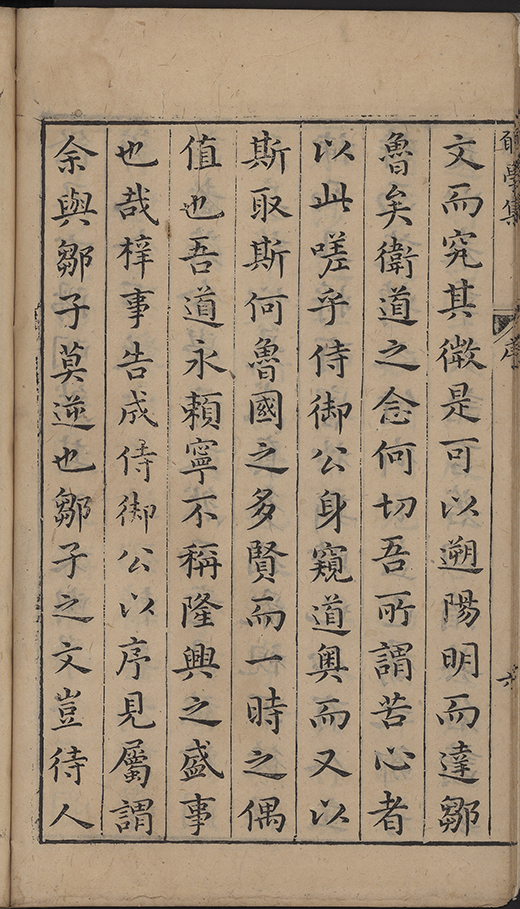 文而究其微是可以遡陽明而達鄒
魯矣衛道之念何切吾所謂苦心者
以此嗟乎侍御公身窺道奥而又以
斯取斯何魯國之多賢而一時之偶
值也吾道永賴寧不稱隆興之盛事
也哉梓事告成侍御公以序見屬謂
余與鄒子莫逆也鄒子之文豈待人